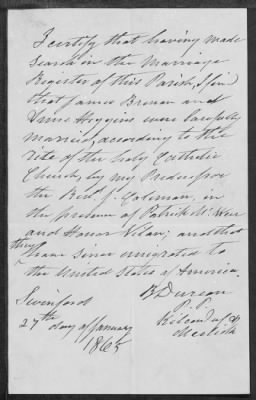 I certify that having made
search in the Marriage
Register of this Parish, I find
that James Brenan and
Anne Heggins were lawfully
married, according to the
rite of the holy Catholic
Church, by my Predecessor
the Revd. J. Coleman, in
the presence of Patrick
and Honor Nilan; and that
they have since emigrated to
the United States of America.
Swinford
27th day of January
1865
B Durcan
P.P.